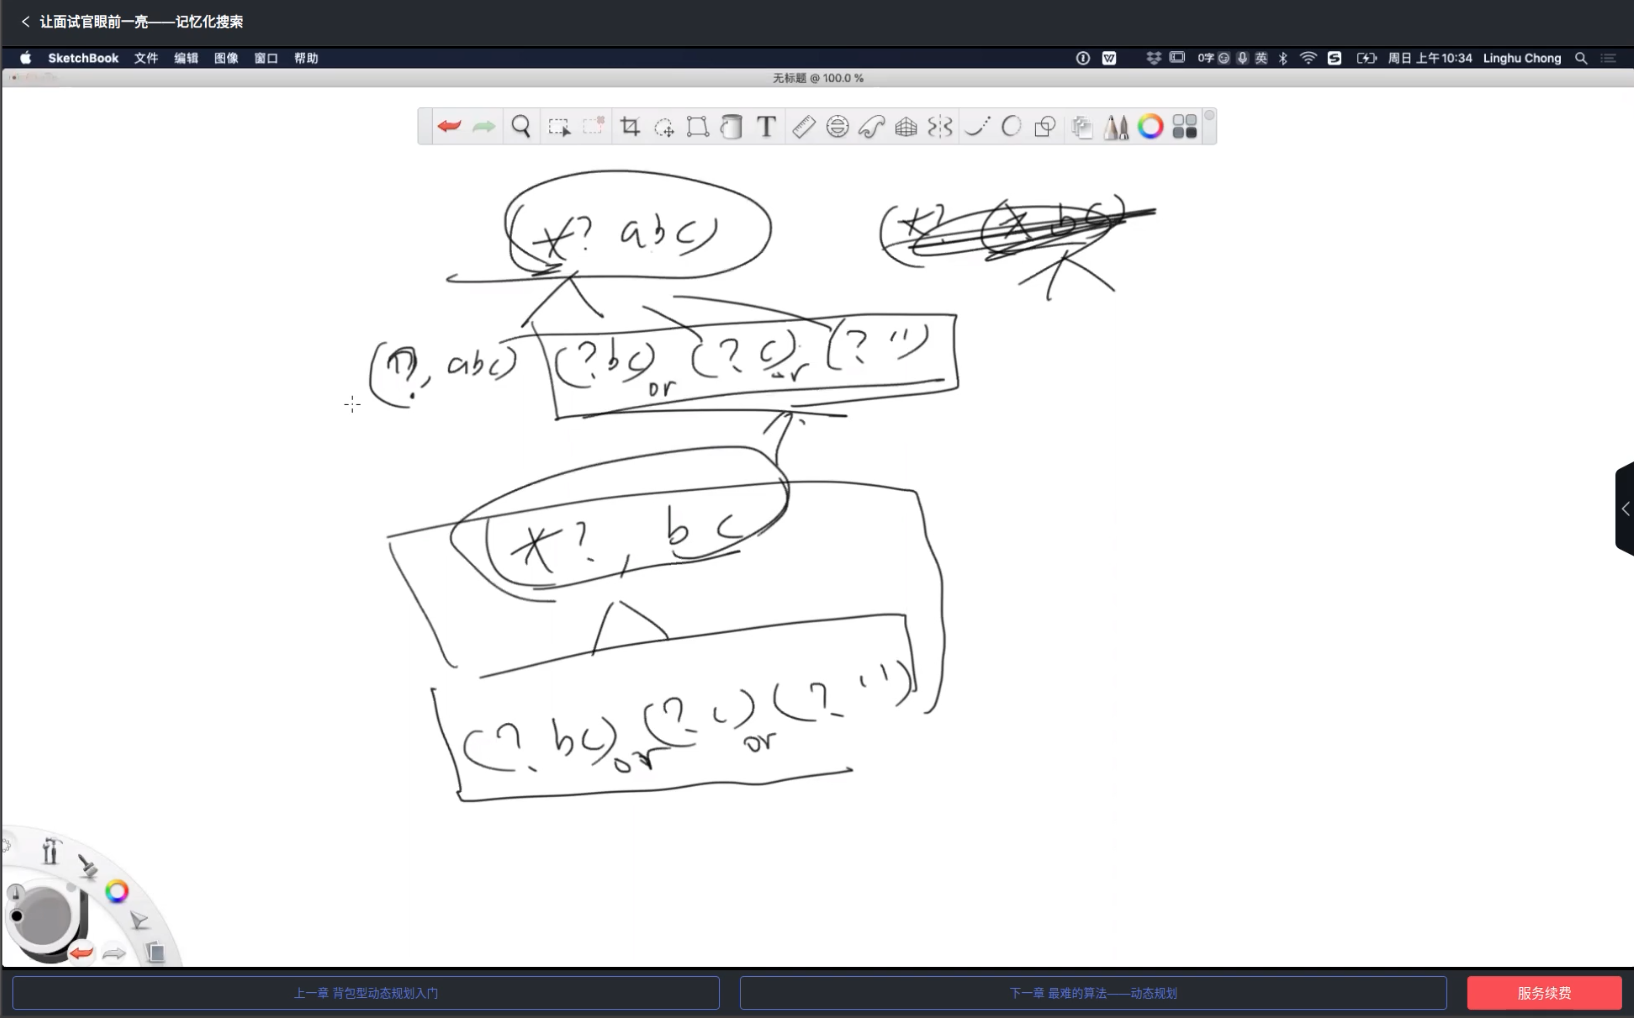 让面试官眼前一亮——记忆化搜索
SketchBook 文件 编辑 图像 窗口 帮助 0字 英 周日 上午10:34 Linghu Chong
无标题 @ 100.0 %
(*? abc)
(*? (* bc)
(?, abc) (?bc) or (? c) or (? '')
*?, bc
(? bc) or (? c) or (? '')
上一章 背包型动态规划入门
下一章 最难的算法——动态规划
服务续费